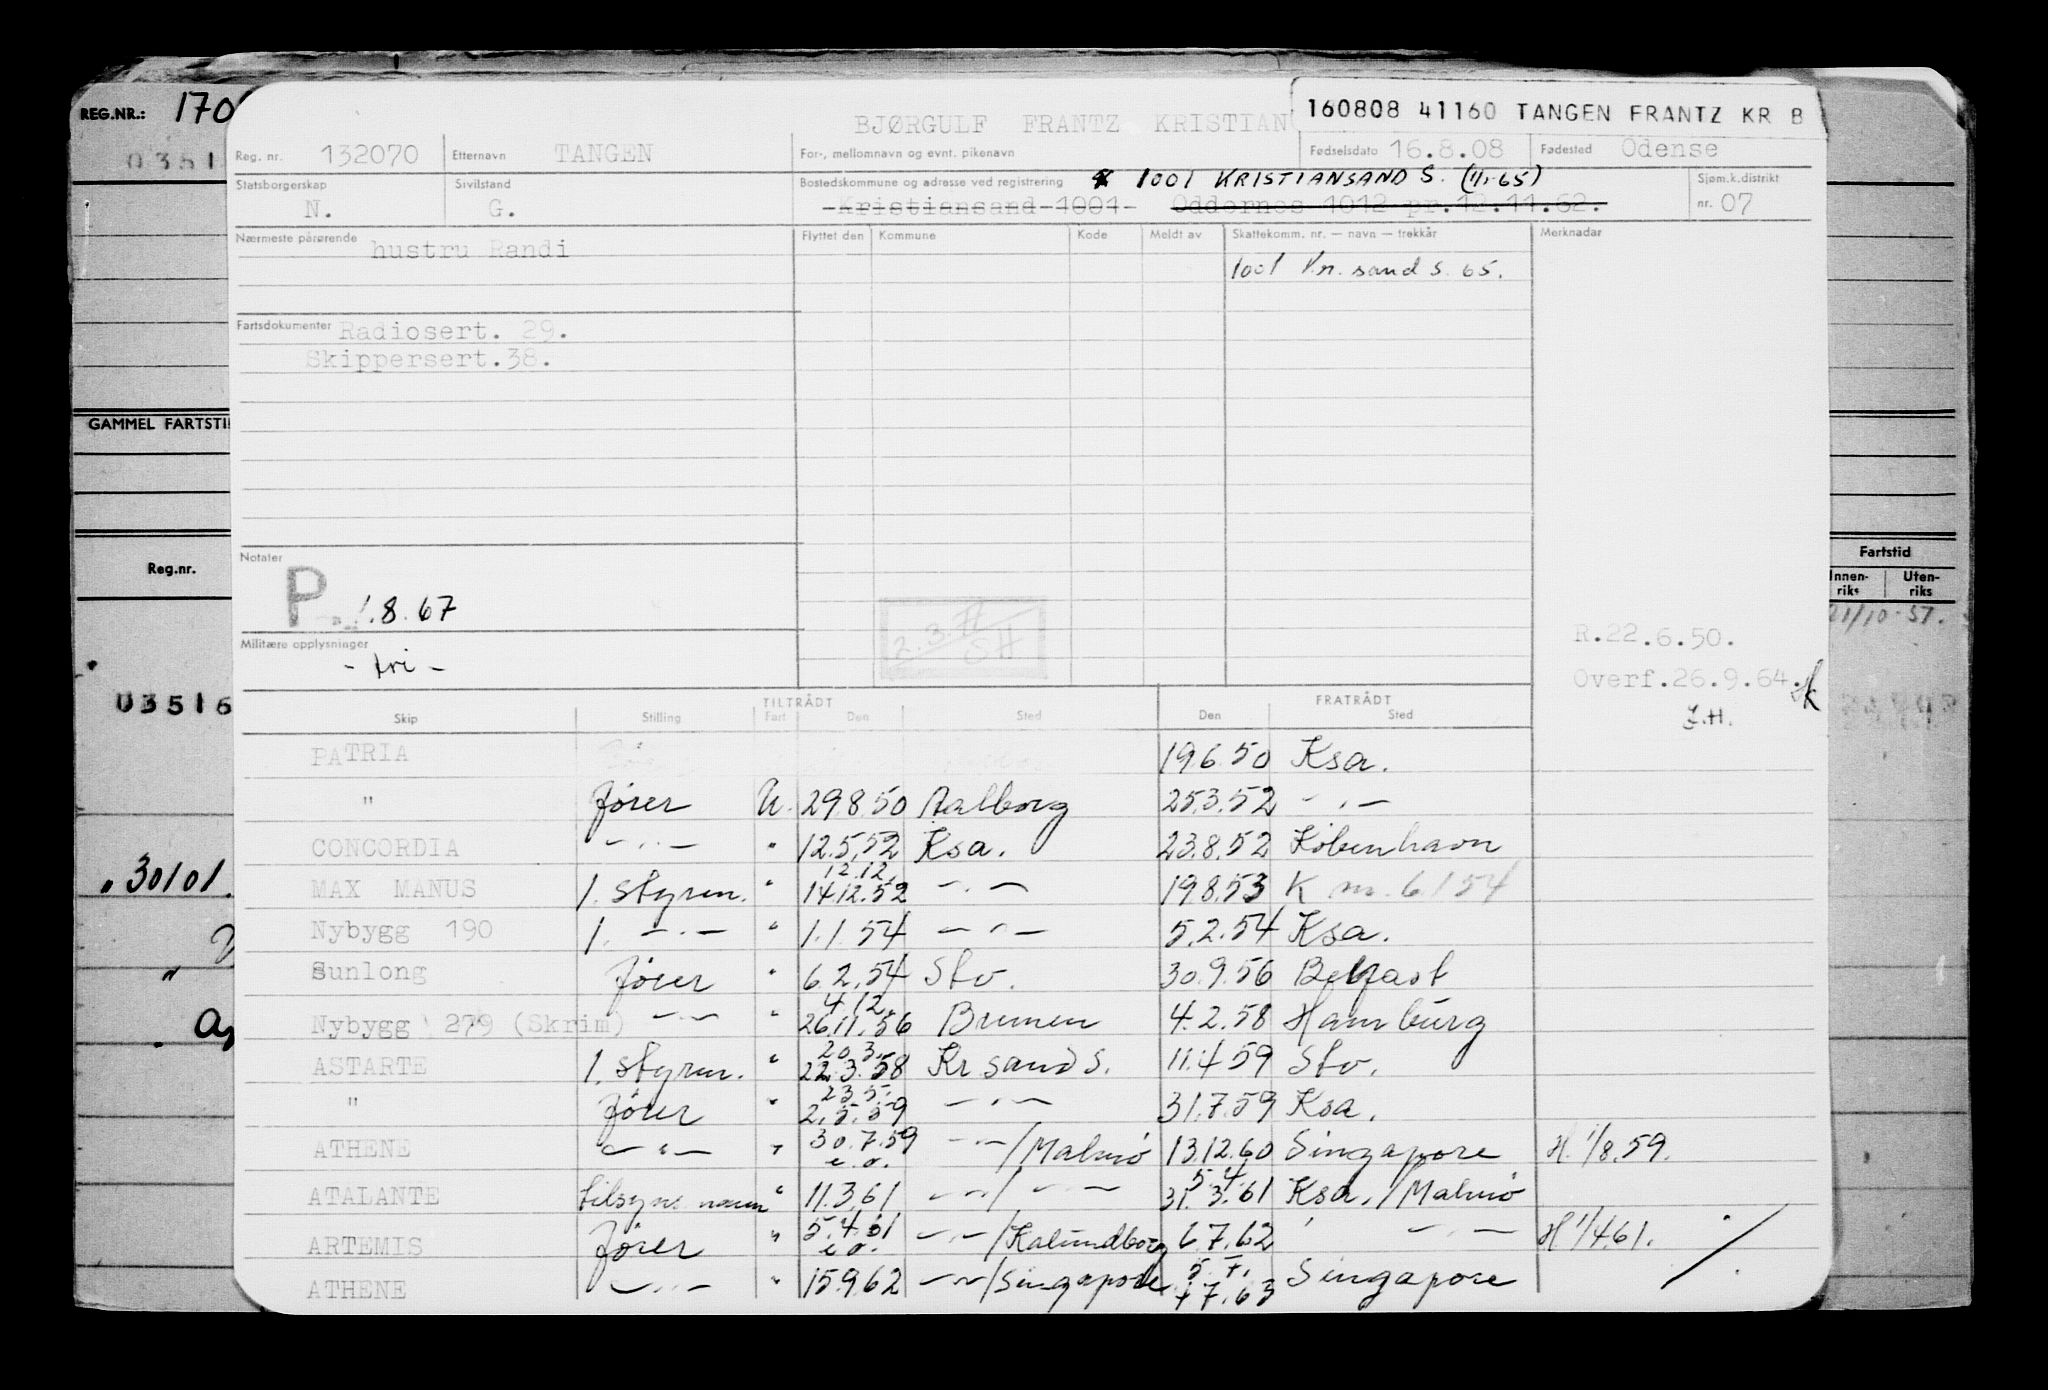 REG.NR.: 170
0351
GAMMEL FARTSTI
Reg.nr.
03516
" 30101.
Fartstid
Innen-riks Uten-riks
21/10-57.
160808 41160 TANGEN FRANTZ KR B
BJØRGULF FRANTZ KRISTIAN
Reg. nr. 132070 Etternavn TANGEN For-, mellomnavn og evnt. pikenavn Fødselsdato 16.8.08 Fødested Odense
Statsborgerskap N. Sivilstand G. Bostedskommune og adresse ved registrering 1001 KRISTIANSAND S. (1/1-65) Sjøm.k.distrikt nr. 07
Kristiansand 1001 Oddernes 1012 pr.12.11.62.
Nærmeste pårørende hustru Randi Flyttet den Kommune Kode Meldt av Skattekomm. nr. — navn — trekkår Merknader
1001 Kr. sand S. 65.
Fartsdokumenter Radiosert. 29.
Skippersert.38.
Notater
P 1.8.67
2.3.
SH
Militære opplysninger
- fri -
R.22.6.50.
Overf.26.9.64.
TILTRÅDT FRATRÅDT
Skip Stilling Fart Den Sted Den Sted
PATRIA 19.6.50 Ksa.
" fører U. 29.8.50 Aalborg 25.3.52 — " —
CONCORDIA — " — " 12.5.52 Ksa. 23.8.52 København
12.12.
MAX MANUS 1. styrm. " 14.12.52 — " — 19.8.53 K m. 6/1 54
Nybygg 190 1. — " — " 1.1.54 — " — 5.2.54 Ksa.
Sunlong fører " 6.2.54 Stv. 30.9.56 Belfast
4.12.
Nybygg 279 (Skrim) — " — " 26.11.56 Bremen 4.2.58 Hamburg
20.3.
ASTARTE 1. styrm. " 22.3.58 Kr sand S. 11.4.59 Stv.
23.5.
" fører " 2.5.59 — " — 31.7.59 Ksa.
ATHENE — " — " 30.7.59 e.o. — " — / Malmö 13.12.60 Singapore H. 1/8.59.
5.4.
ATALANTE tilsyns mann " 11.3.61 — " — / — " — 31.3.61 Ksa. / Malmö
ARTEMIS fører " 5.4.61 e.o. — " — / Kalundborg 6.7.62 — " — H 1/4.61.
5.7.
ATHENE — " — " 15.9.62 — " — / Singapore 7.63 Singapore